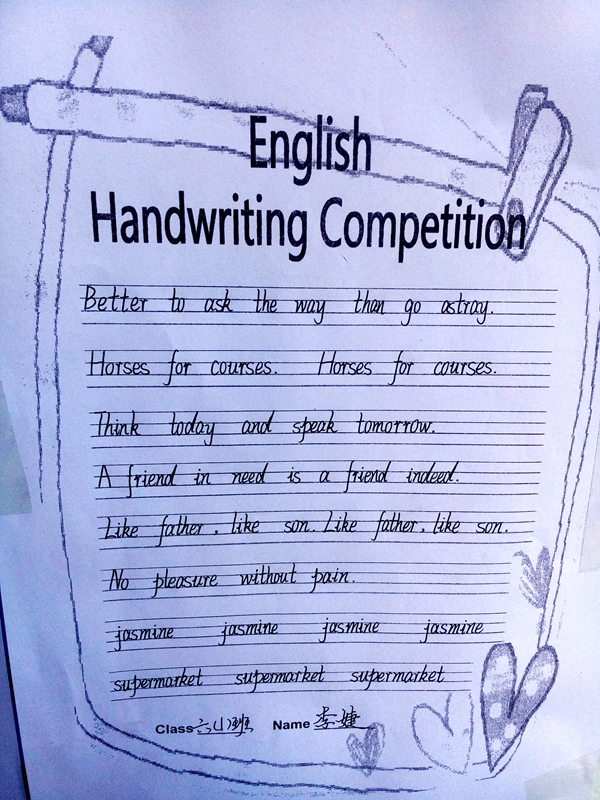 English
Handwriting Competition
Better to ask the way than go astray.
Horses for courses. Horses for courses.
Think today and speak tomorrow.
A friend in need is a friend indeed.
Like father, like son. Like father, like son.
No pleasure without pain.
jasmine jasmine jasmine jasmine
supermarket supermarket supermarket
Class 六(4)班 Name 李婕